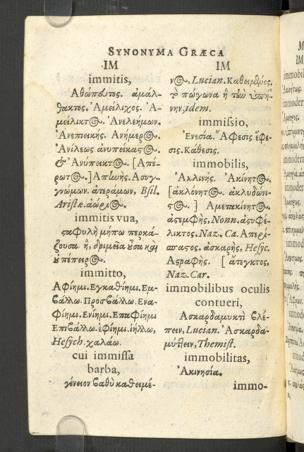 SYNONYMA GRÆCA
IM
immitis,
Ἀθώπευτος. ἀμάλ-
θακτος. Ἀμείλιχος. Ἀ-
μείλικτος. Ἀνελεήμων.
Ἀνεπιεικής. Ἀνήμερος.
Ἀνίλεως
& Ἀνύποικτος. [Ἀπί-
Ἀπηνής. Ἀσυγ-
γνώμων. ἀτεράμων, Eſil.
Ariſtæ.
immitis vua,
σταφυλὴ μήπω περκά-
ζουσα ἢ, δριμεῖα οὖσα καὶ
immitto,
Ἀφίημι. Ἐγκαθίημι. Ἐμ-
βάλλω. Προσβάλλω. Ἐνα-
φίημι. Ἐνίημι. Ἐπαφίημι
Ἐπιβάλλω. ἐφίημι. ἰήλλω,
Heſych. χαλάω.
cui immiſſa
barba,
γένειον βαθὺ καθειμέ-
IM
νος. Lucian. Καθειμένος.
πώγωνα ἢ τὴν ὑπή-
νην, idem.
immiſsio,
Ἐνεσία. Ἄφεσις ἔφε-
σις. Κάθεσις.
immobilis,
Ἀκλινής. Ἀκίνητος.
[ἀκλόνητος.
] Ἀμετακίνητος.
ἀστεμφής, Nonn. ἀστυφέ-
λικτος. Naz. Ca. Ἀπερί-
ἀσκαρής, Heſyc.
Ἀστραφής. [ἄπηκτος,
Naz. Car.
immobilibus oculis
contueri,
Ἀσκαρδαμυκτὶ βλέ-
πειν, Lucian. Ἀσκαρδα-
μύττειν, Themiſt.
immobilitas,
Ἀκινησία.
immo-